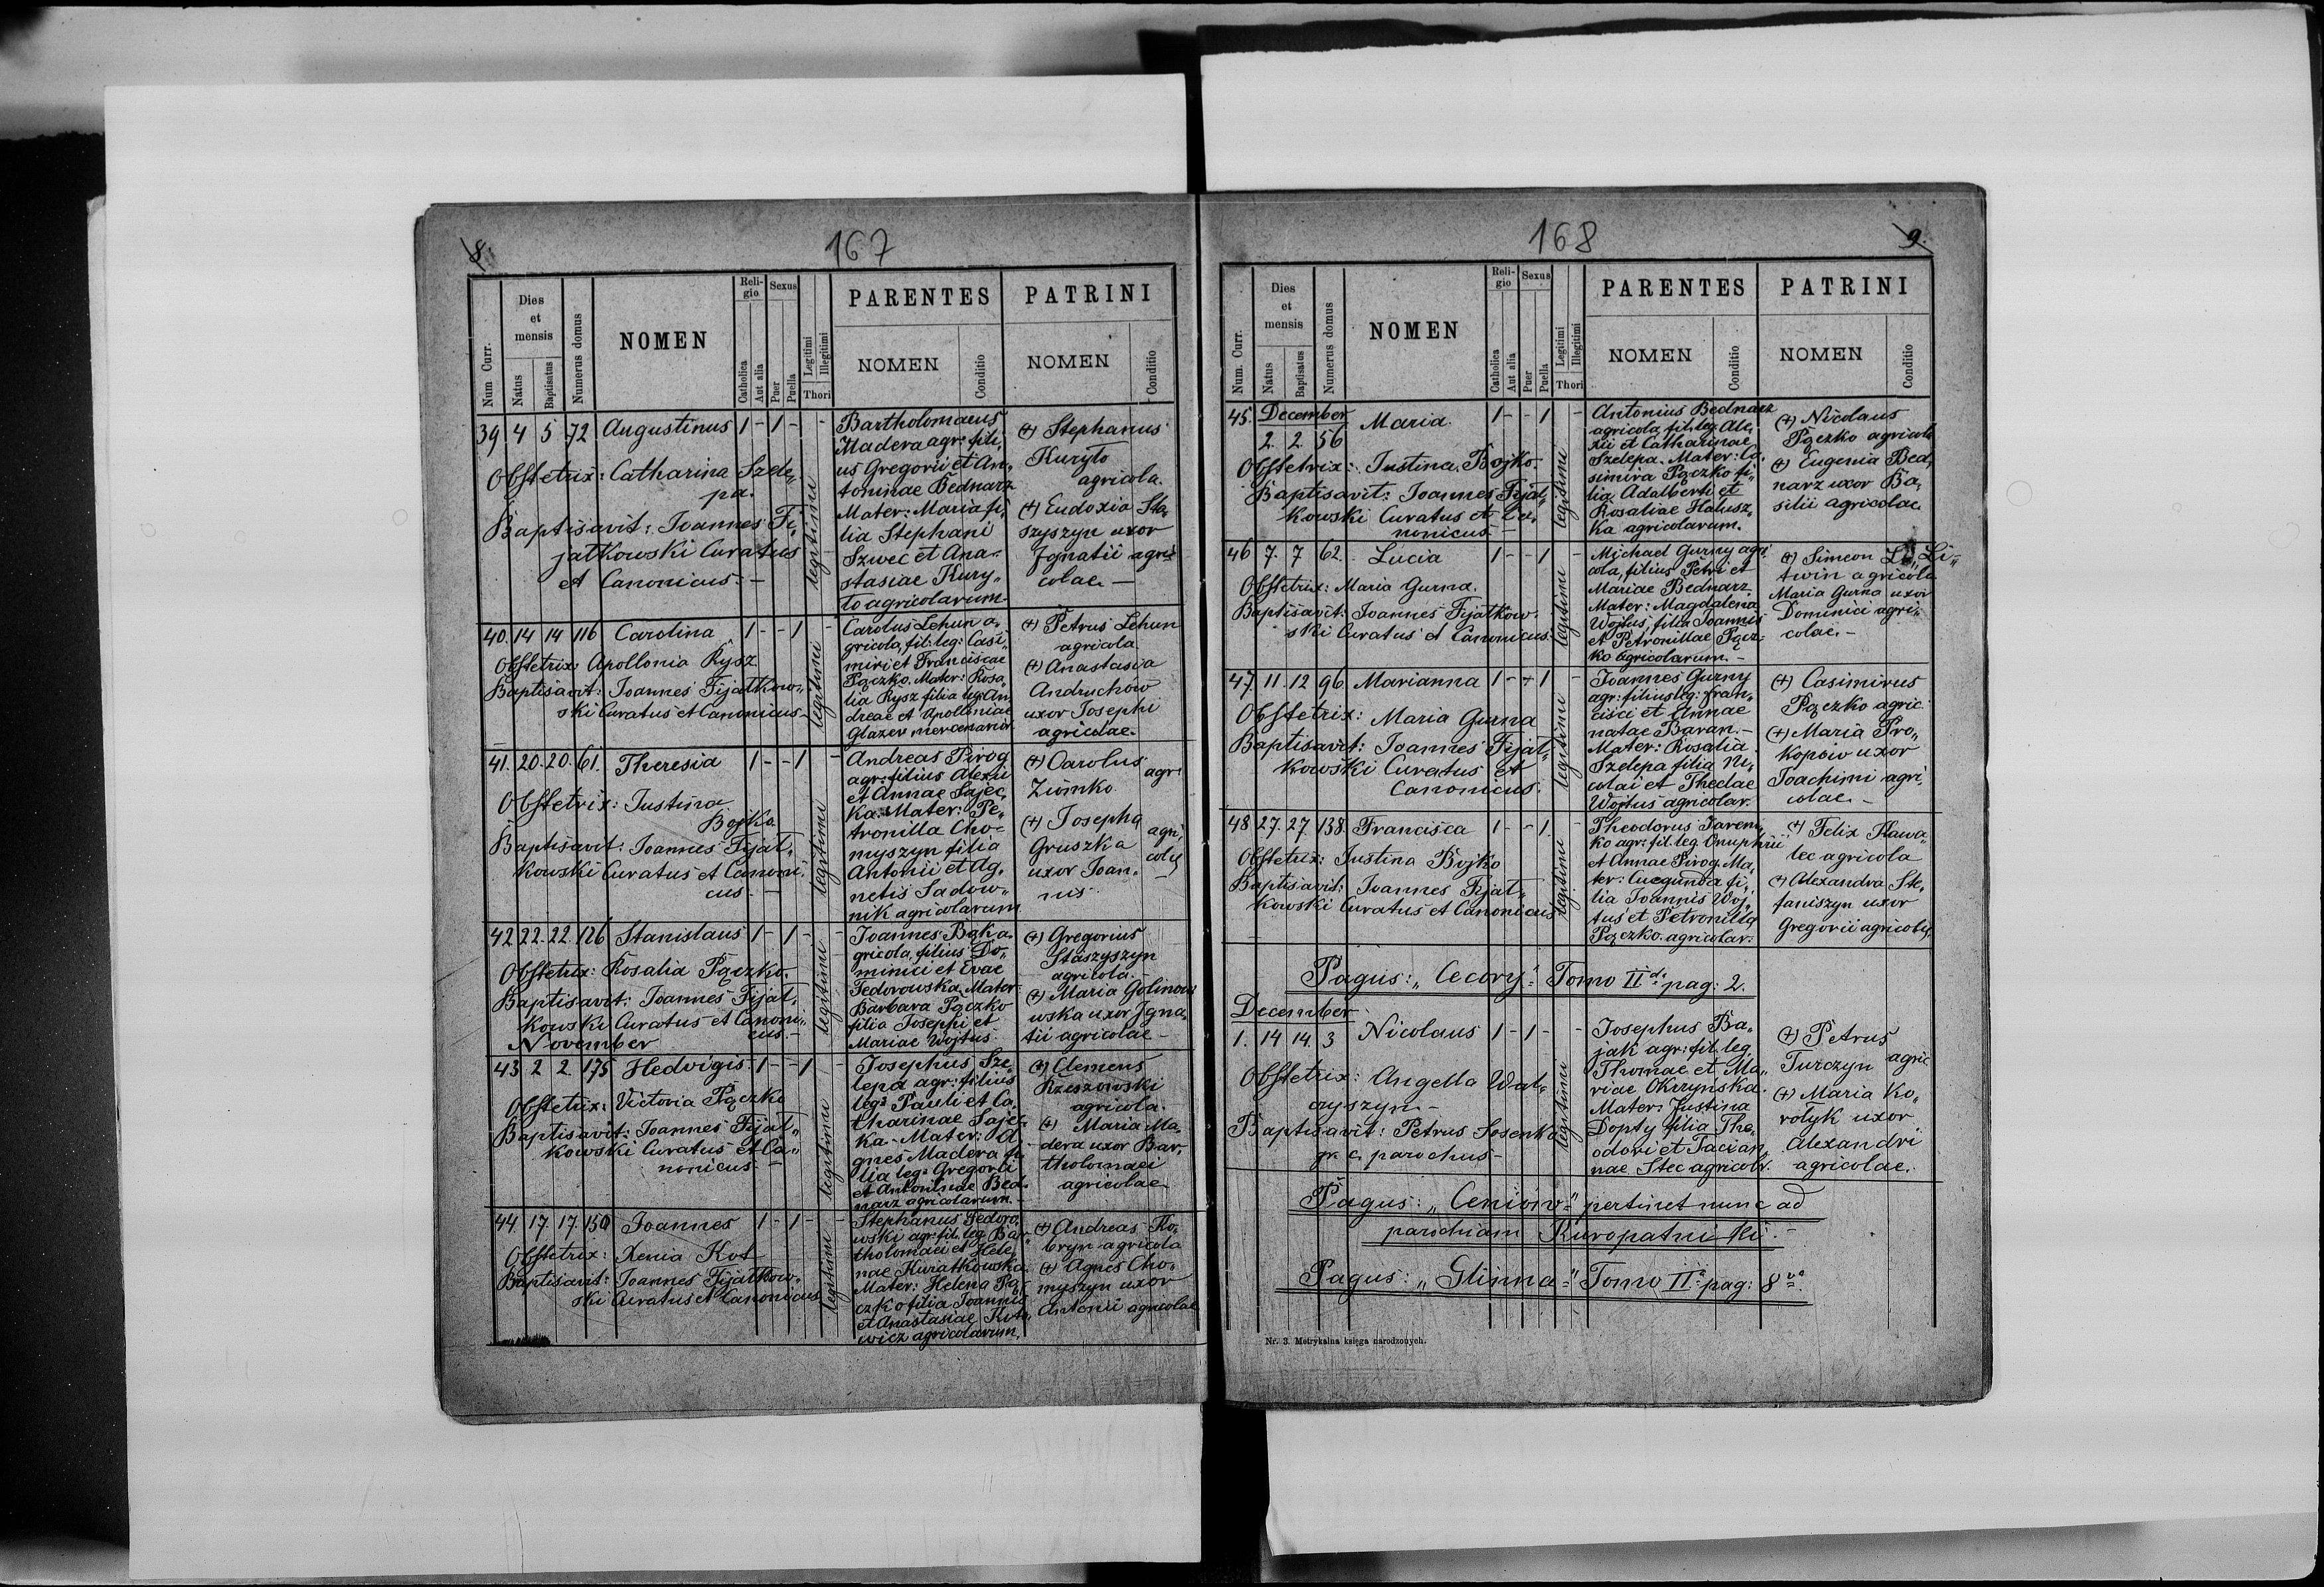 8.
167
Num Curr.
Dies et mensis
Natus
Baptisatus
Numerus domus
NOMEN
Religio
Catholica
Aut alia
Sexus
Puer
Puella
Legitimi
Illegitimi
Thori
PARENTES
NOMEN
Conditio
PATRINI
NOMEN
Conditio
39 4 5 72 Augustinus 1 - 1 - -
Obstetrix: Catharina Szele„
pa.
Baptisavit: Joannes Fi„
jałkowski Curatus
et Canonicus. —
legitimi
Bartholomaeus
Madera agr: fili„
us Gregorii et An„
toninae Bednarz
Mater: Maria fi„
lia Stephani
Szwec et Ana„
stasiae Kury„
ło agricolarum
(+) Stephanus
Kuryło
agricola.
(+) Eudoxia Sta„
szyszyn uxor
Ignatii agri„
colae. —
40. 14 14 116 Carolina 1 - - 1 -
Obstetrix: Apollonia Rysz
Baptisavit: Joannes Fijałkow„
ski Curatus et Canonicus —
legitimi
Carolus Lehun a„
gricola, fil: leg: Casi„
miri et Franciscae
Pączko. Mater: Rosa„
lia Rysz filia leg: An„
dreae et Apolloniae
Glazer mercenarior
(+) Petrus Lehun
agricola
(+) Anastasia
Andruchów
uxor Josephi
agricolae.
41. 20. 20. 61. Theresia 1 - - 1 -
Obstetrix: Justina
Bojko
Baptisavit: Joannes Fijał„
kowski Curatus et Canoni„
cus. —
legitimi
Andreas Pirog
agr: filius Alexii
et Annae Sajec„
ka. Mater: Pe„
tronilla Cho„
myszyn filia
Antonii et Ag„
netis Sadow„
nik agricolarum
(+) Carolus
Ziomko
agri
(+) Josepha
Gruszka
uxor Joan„
nis
agri„
colae
42 22. 22. 126 Stanislaus 1 - 1 - -
Obstetrix: Rosalia Pączko.
Baptisavit: Joannes Fijał„
kowski Curatus et Canoni„
cus. —
legitimi
Joannes Bąk a„
gricola, filius Do„
minici et Evae
Fedorowska Mater
Barbara Pączko
filia Josephi et
Mariae Wojtus
(+) Gregorius
Staszyszyn
agricola.
(+) Maria Golinow
wska uxor Igna„
tii agricolae —
November
43 2 2. 175 Hedvigis 1 - - 1 -
Obstetrix: Victoria Pączko
Baptisavit: Joannes Fijał„
kowski Curatus et Ca„
nonicus. —
legitimi
Josephus Sze„
lepa agr: filius
leg: Pauli et Ca„
tharinae Sajec„
ka - Mater: A„
gnes Madera fi„
lia leg: Gregorii
et Antoninae Bed„
narz agricolarum. —
(+) Clemens
Rzeszowski
agricola.
(+) Maria Ma„
dera uxor Bar„
tholomaei
agricolae
44 17. 17. 150 Joannes 1 - 1 - -
Obstetrix: Xenia Kot
Baptisavit: Joannes Fijałkow„
ski Curatus et Canonicus
legitimi
Stephanus Fedoro„
wski agr: fil. leg. Bar„
tholomaei et Hele„
nae Kuratkowska.
Mater: Helena Pą„
czko filia Joannis
et Anastasiae
wicz agricolarum.
(+) Andreas Ko„
bryn agricola
(+) Agnes Cho„
myszyn uxor
Antonii agricolae
168
9.
Num. Curr.
Dies et mensis
Natus
Baptisatus
Numerus domus
NOMEN
Religio
Catholica
Aut alia
Sexus
Puer
Puella
Legitimi
Illegitimi
Thori
PARENTES
NOMEN
Conditio
PATRINI
NOMEN
Conditio
45. December Maria. 1 - - 1 -
2. 2. 56
Obstetrix: Justina Bojko.
Baptisavit: Joannes Fijał„
kowski Curatus et Ca„
nonicus. —
legitimi
Antonius Bednarz
agricola, fil. leg. Ale„
xii et Catharinae
Szelepa. Mater: Ca„
simira Pączko fi„
lia Adalberti et
Rosaliae Hałusz„
ka agricolarum.
(+) Nicolaus
Pączko agricola
(+) Eugenia Bed„
narz uxor Ba„
silii agricolae
46 7. 7 62. Lucia 1 - - 1 -
Obstetrix: Maria Gurna.
Baptisavit: Joannes Fijałkow„
ski Curatus et Canonicus.
legitimi
Michael Gurny agri
cola, filius Petri et
Mariae Bednarz
Mater: Magdalena
Wojtus, filia Joannis
et Petronillae Pącz„
ko agricolarum. —
(+) Simeon Li„
twin agricola
Maria Gurna uxor
Dominici agri„
colae. —
47. 11. 12 96. Marianna 1 - - 1 -
Obstetrix: Maria Gurna
Baptisavit: Joannes Fijał„
kowski Curatus et
Canonicus.
legitimi
Joannes Gurny
agr: filius leg: Fran„
cisci et Annae
natae Baran. —
Mater: Rosalia
Szelepa filia Ni„
colai et Theclae
Wojtus agricolar.
(+) Casimirus
Pączko agric
(+) Maria Pro„
kopów uxor
Joachimi agri„
colae. —
48 27. 27. 138. Francisca 1 - - 1 -
Obstetrix: Justina Bojko
Baptisavit: Joannes Fijał„
kowski Curatus et Canonicus
legitimi
Theodorus Jarem„
ko agr: fil. leg. Onuphrii
et Annae Pirog. Ma„
ter: Cuegunda fi„
lia Joannis Woj„
tus et Petronilla
Pączko agricolar.
(+) Felix Hawa„
lec agricola
(+) Alexandra Ste„
faniszyn uxor
Gregorii agricolae
Pagus: „Cecory" Tomo IIdo pag: 2.
December
1. 14 14. 3 Nicolaus 1 - 1 - -
Obstetrix: Angella Wal„
czyszyn. —
Baptisavit: Petrus Sosenko
gr. c. parochus —
legitimi
Josephus Ba„
jak agr: fil. leg.
Thomae et Ma„
riae Okrzyńska.
Mater: Justina
Dopty filia The„
odori et Tacian„
nae Stec agricolr.
(+) Petrus
Turczyn agric
(+) Maria Ko„
rołyk uxor
Alexandri
agricolae.
Pagus: „Ceniów" pertinet nunc ad
parochiam Kuropatniki. —
Pagus: „Glinna" Tomo IIo pag: 8va.
Nr. 3. Metrykalna księga narodzonych.